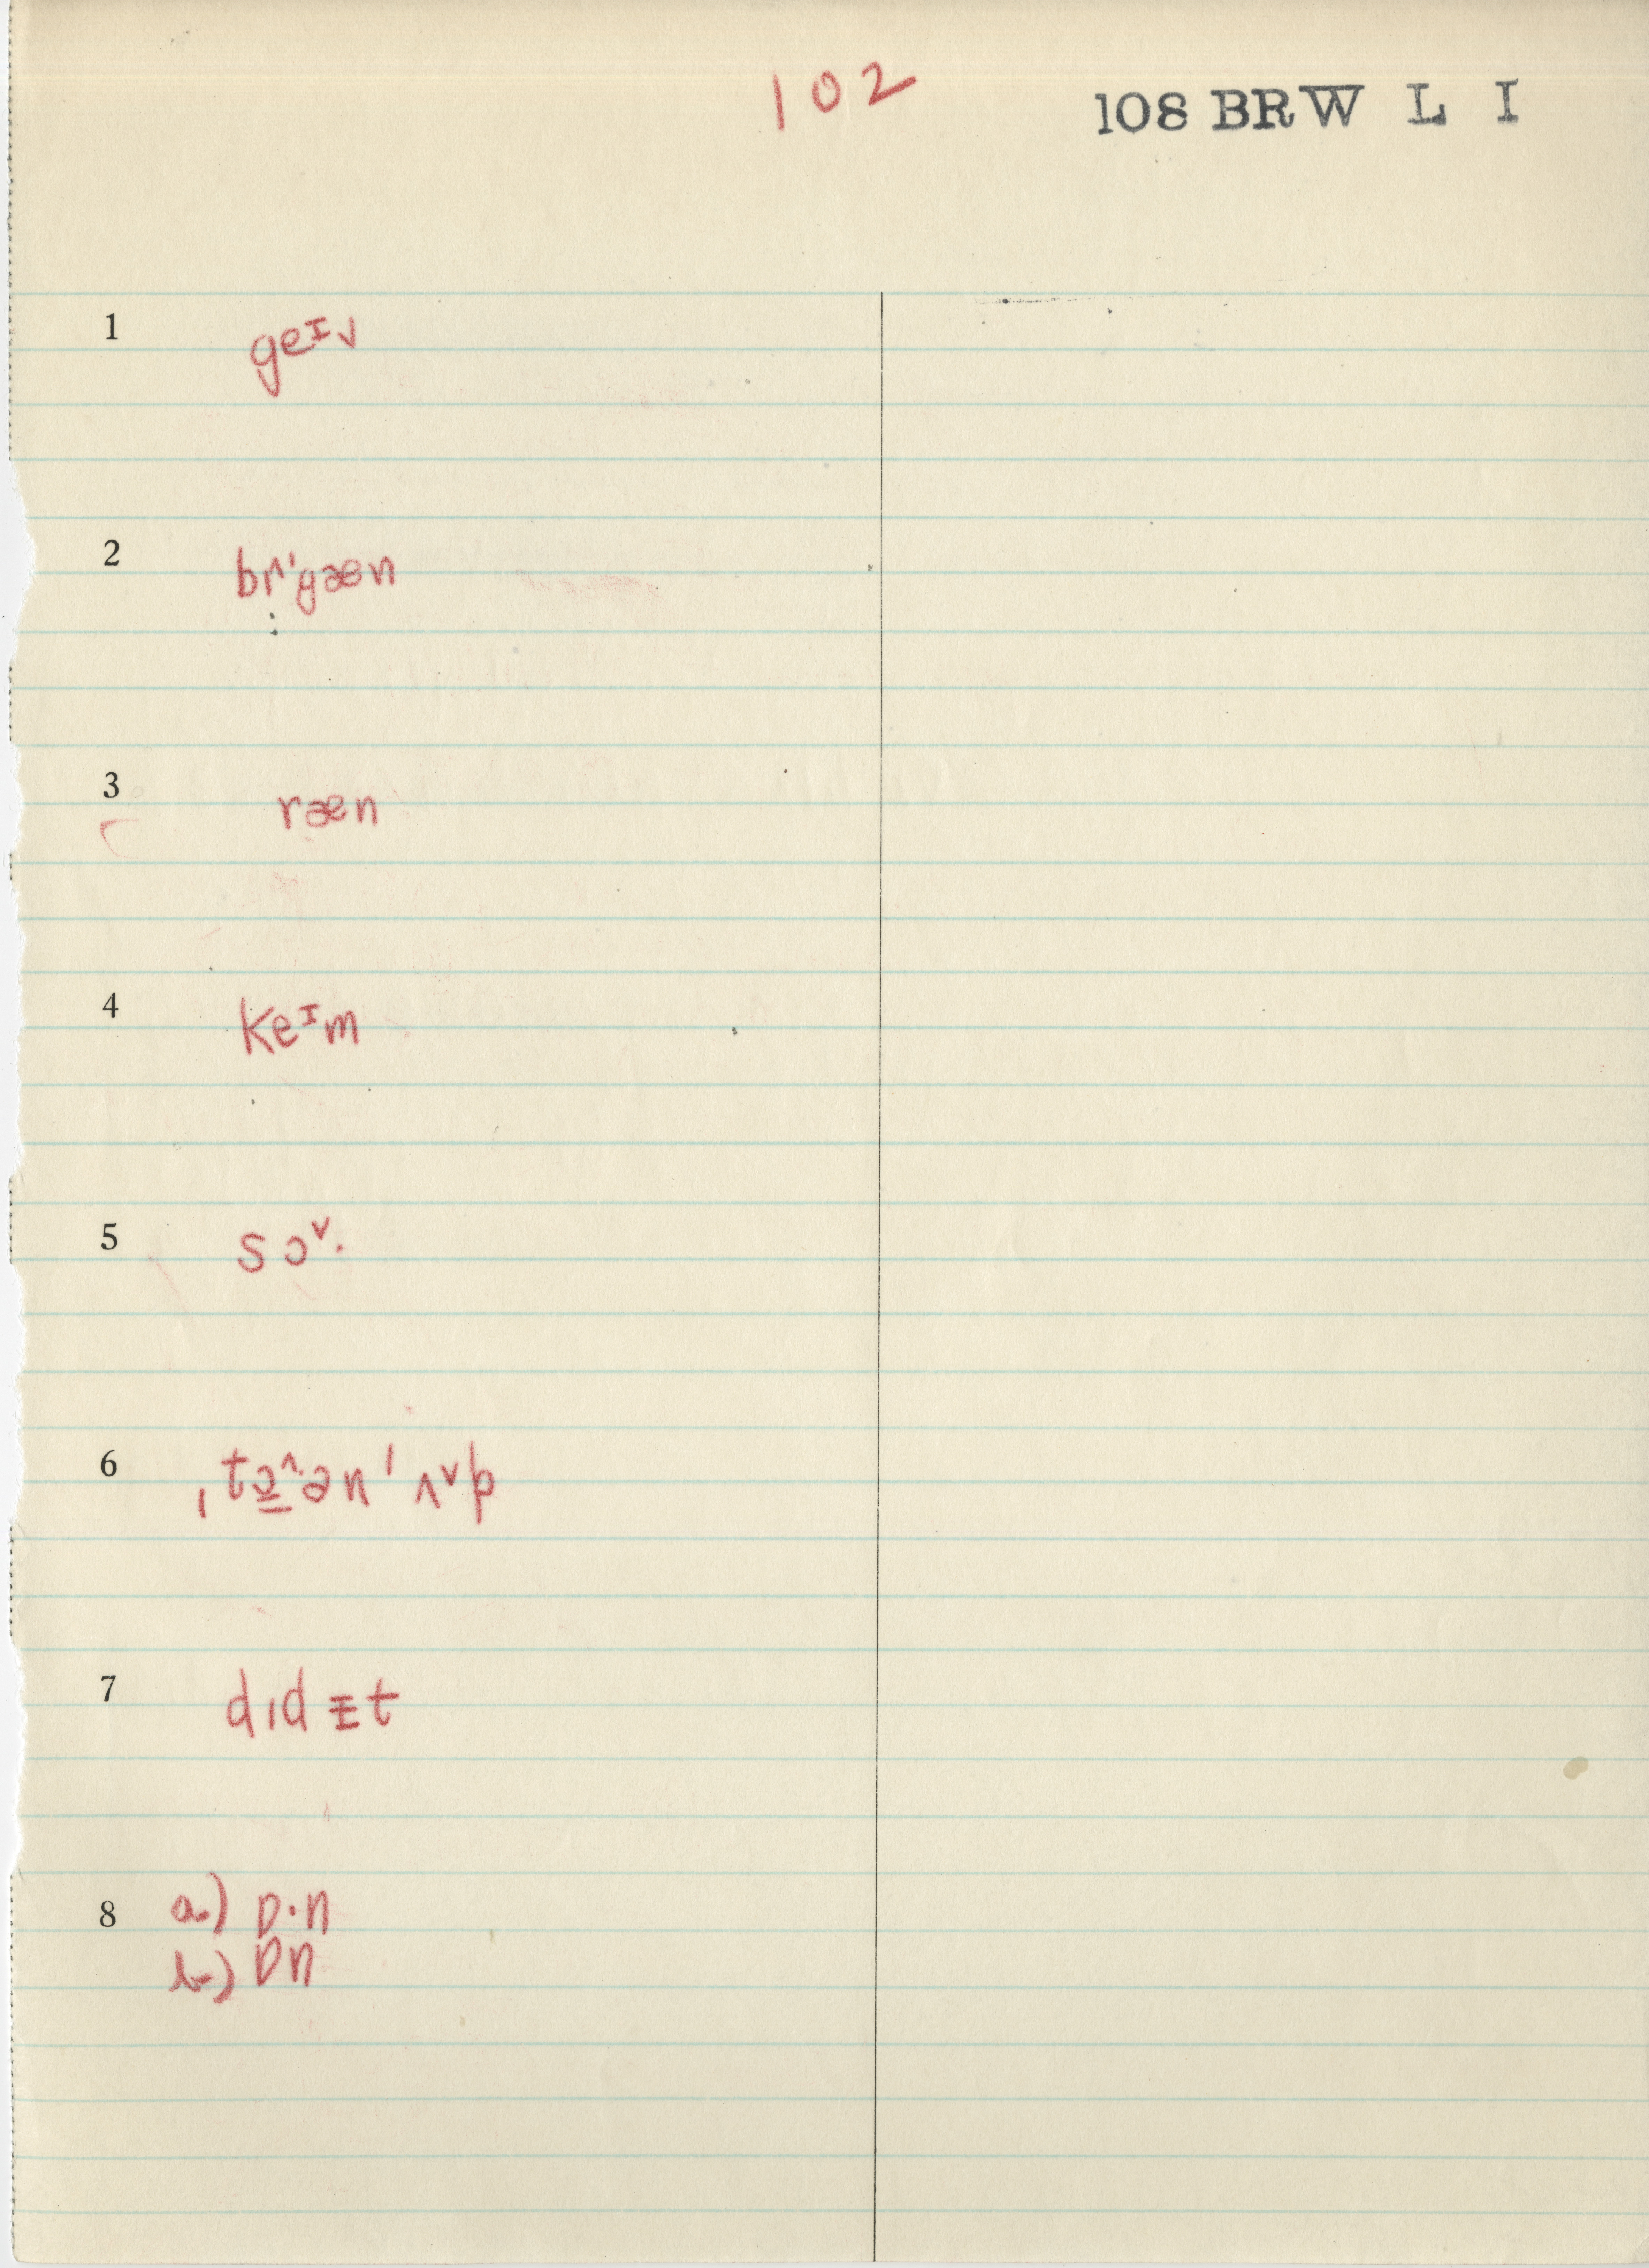 102
108 BRW L I
1 geᶦv
2 bɪ^'gæn
3 ræn
4 keᶦm
5 sɔˇ·
6 ˌtɔ̱^·ən ' ʌˇp
7 dɪd ᵻt
8 a) ɒ·n
b) ɒn